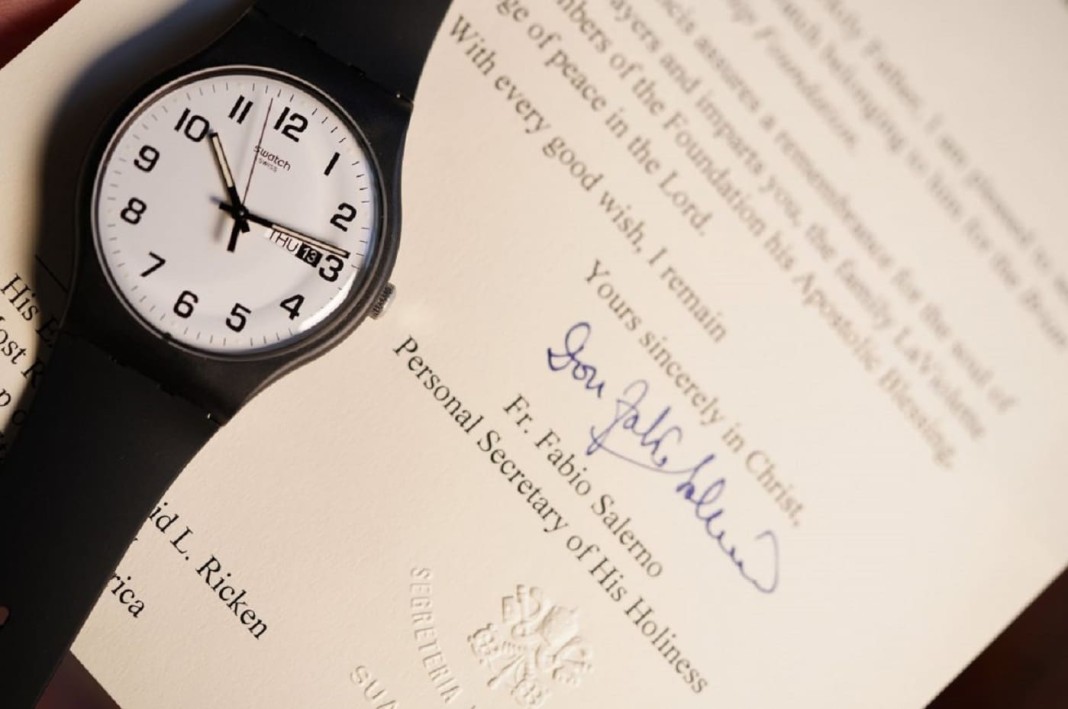 12
1
2
3
4
5
6
7
8
9
10
11
swatch
SWISS
THU 13
pleased to
watch belonging to him for the
Foundation.
assures a remembrance for the soul of
ayers and imparts you, the family LaViolette
mbers of the Foundation his Apostolic Blessing,
ge of peace in the Lord.
With every good wish, I remain
Yours sincerely in Christ,
Don Fabio Salerno
Fr. Fabio Salerno
Personal Secretary of His Holiness
SEGRETERIA
SUA
His E
ost R
p o
id L. Ricken
rica